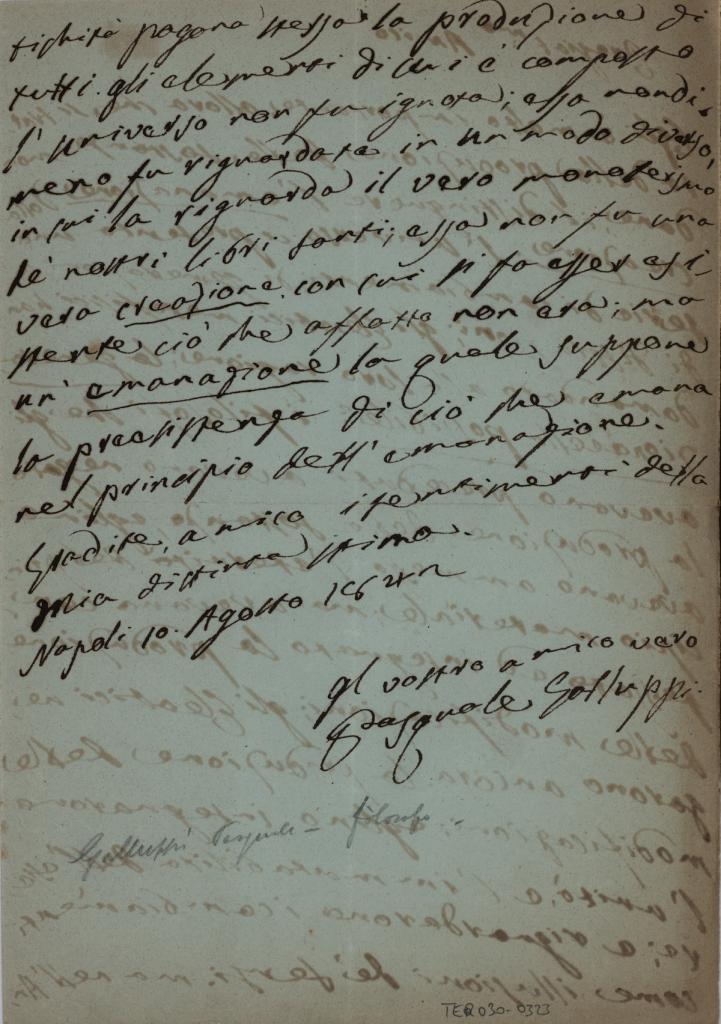 tichità pagana stessa la produzione di
tutti gli elementi di cui è composto
l'universo non fu ignota; essa nondi-
meno fu riguardata in un modo diverso,
in cui la riguarda il vero monoteismo
de' nostri libri santi; essa non fu una
vera creazione con cui si fa esser esi-
stente ciò che affatto non era; ma
un' emanazione la quale suppone
la preesistenza di ciò che emana
nel principio dell' emanazione.
Gradite, amico i sentimenti della
Mia distinta stima.
Napoli 10. Agosto 1842
Il vostro amico vero
Pasquale Galluppi.
Galluppi Pasquale – filosofo –
TER 030-0323